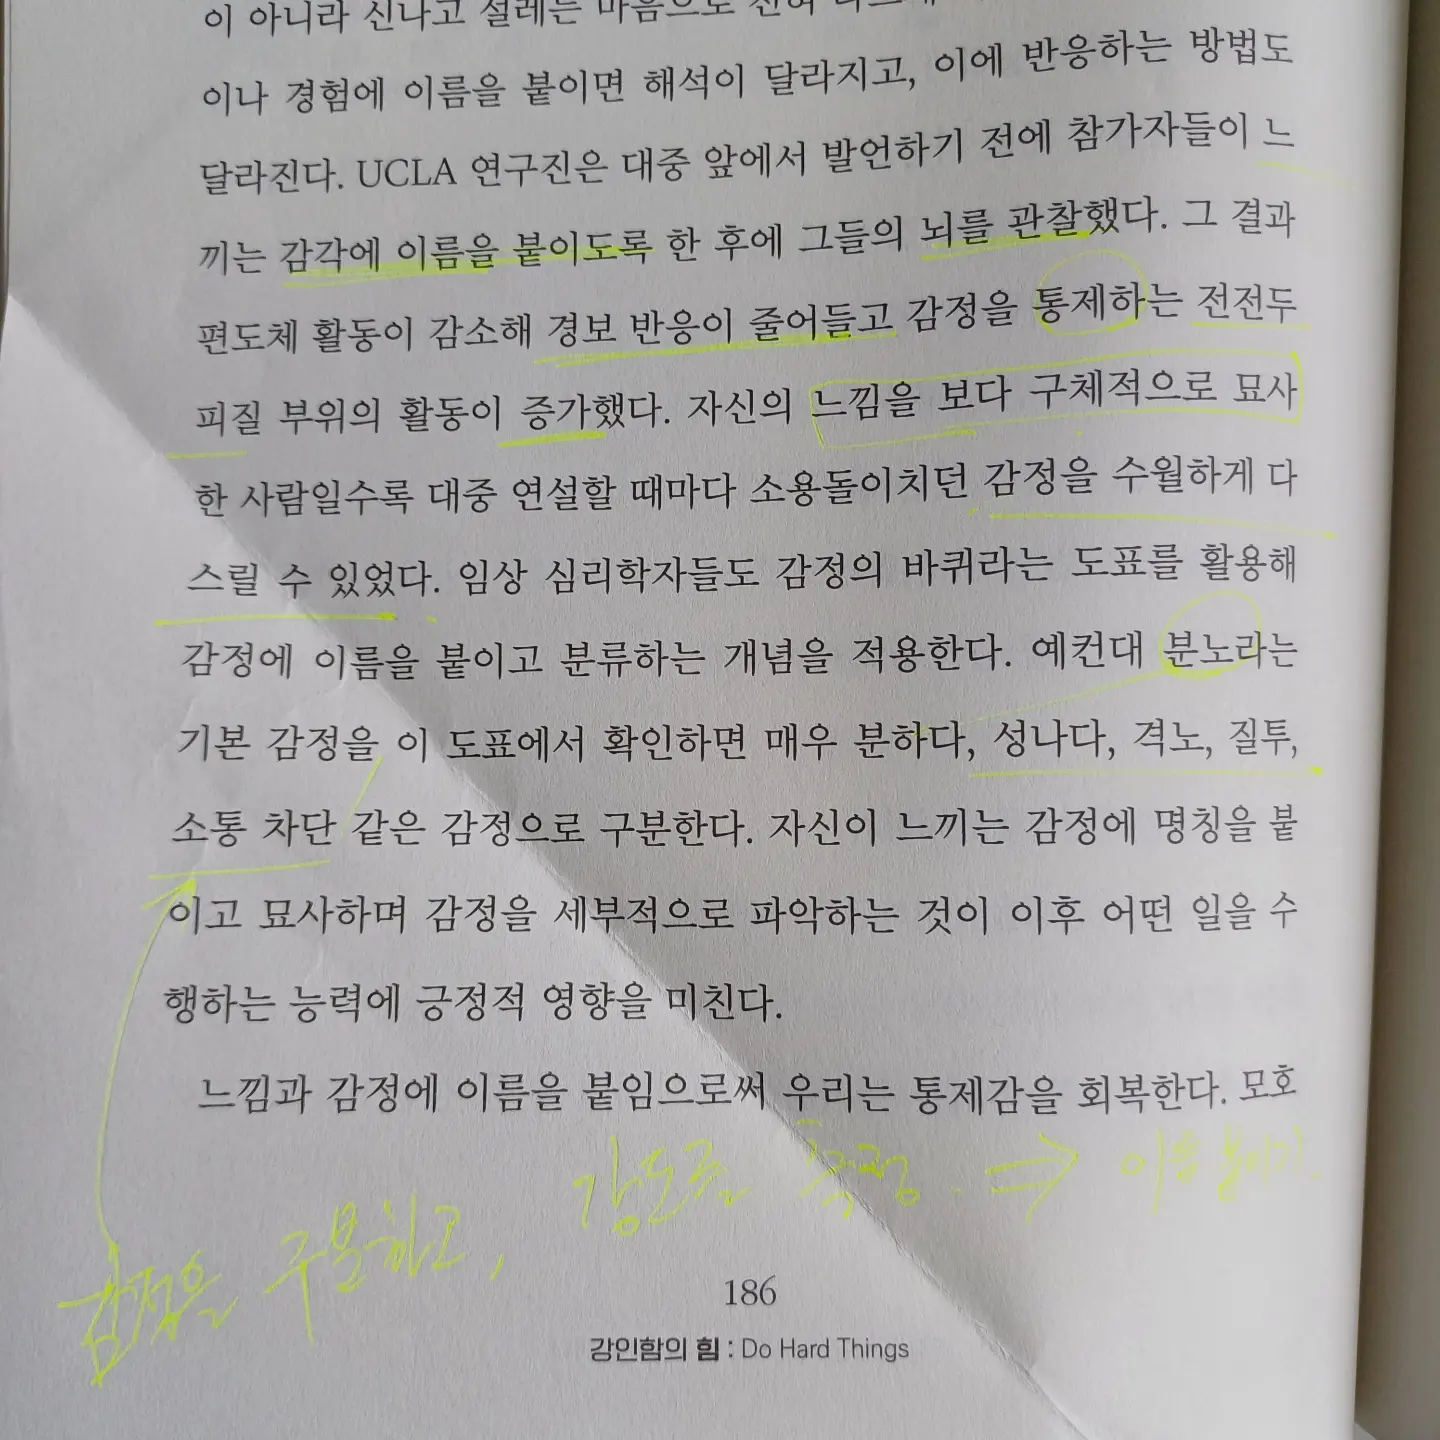 이 아니라 신나고 설레는 마음으로
이나 경험에 이름을 붙이면 해석이 달라지고, 이에 반응하는 방법도
달라진다. UCLA 연구진은 대중 앞에서 발언하기 전에 참가자들이 느
끼는 감각에 이름을 붙이도록 한 후에 그들의 뇌를 관찰했다. 그 결과
편도체 활동이 감소해 경보 반응이 줄어들고 감정을 통제하는 전전두
피질 부위의 활동이 증가했다. 자신의 느낌을 보다 구체적으로 묘사
한 사람일수록 대중 연설할 때마다 소용돌이치던 감정을 수월하게 다
스릴 수 있었다. 임상 심리학자들도 감정의 바퀴라는 도표를 활용해
감정에 이름을 붙이고 분류하는 개념을 적용한다. 예컨대 분노라는
기본 감정을 이 도표에서 확인하면 매우 분하다, 성나다, 격노, 질투,
소통 차단 같은 감정으로 구분한다. 자신이 느끼는 감정에 명칭을 붙
이고 묘사하며 감정을 세부적으로 파악하는 것이 이후 어떤 일을 수
행하는 능력에 긍정적 영향을 미친다.
느낌과 감정에 이름을 붙임으로써 우리는 통제감을 회복한다. 모호
감정을 구분하고, 강도를 측정 ⇒ 이름 붙이기.
186
강인함의 힘 : Do Hard Things